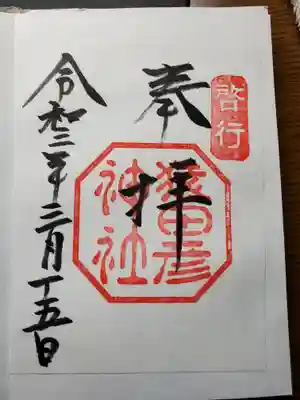 啓行
奉拝
猿田彦
神社
令和二年三月十五日